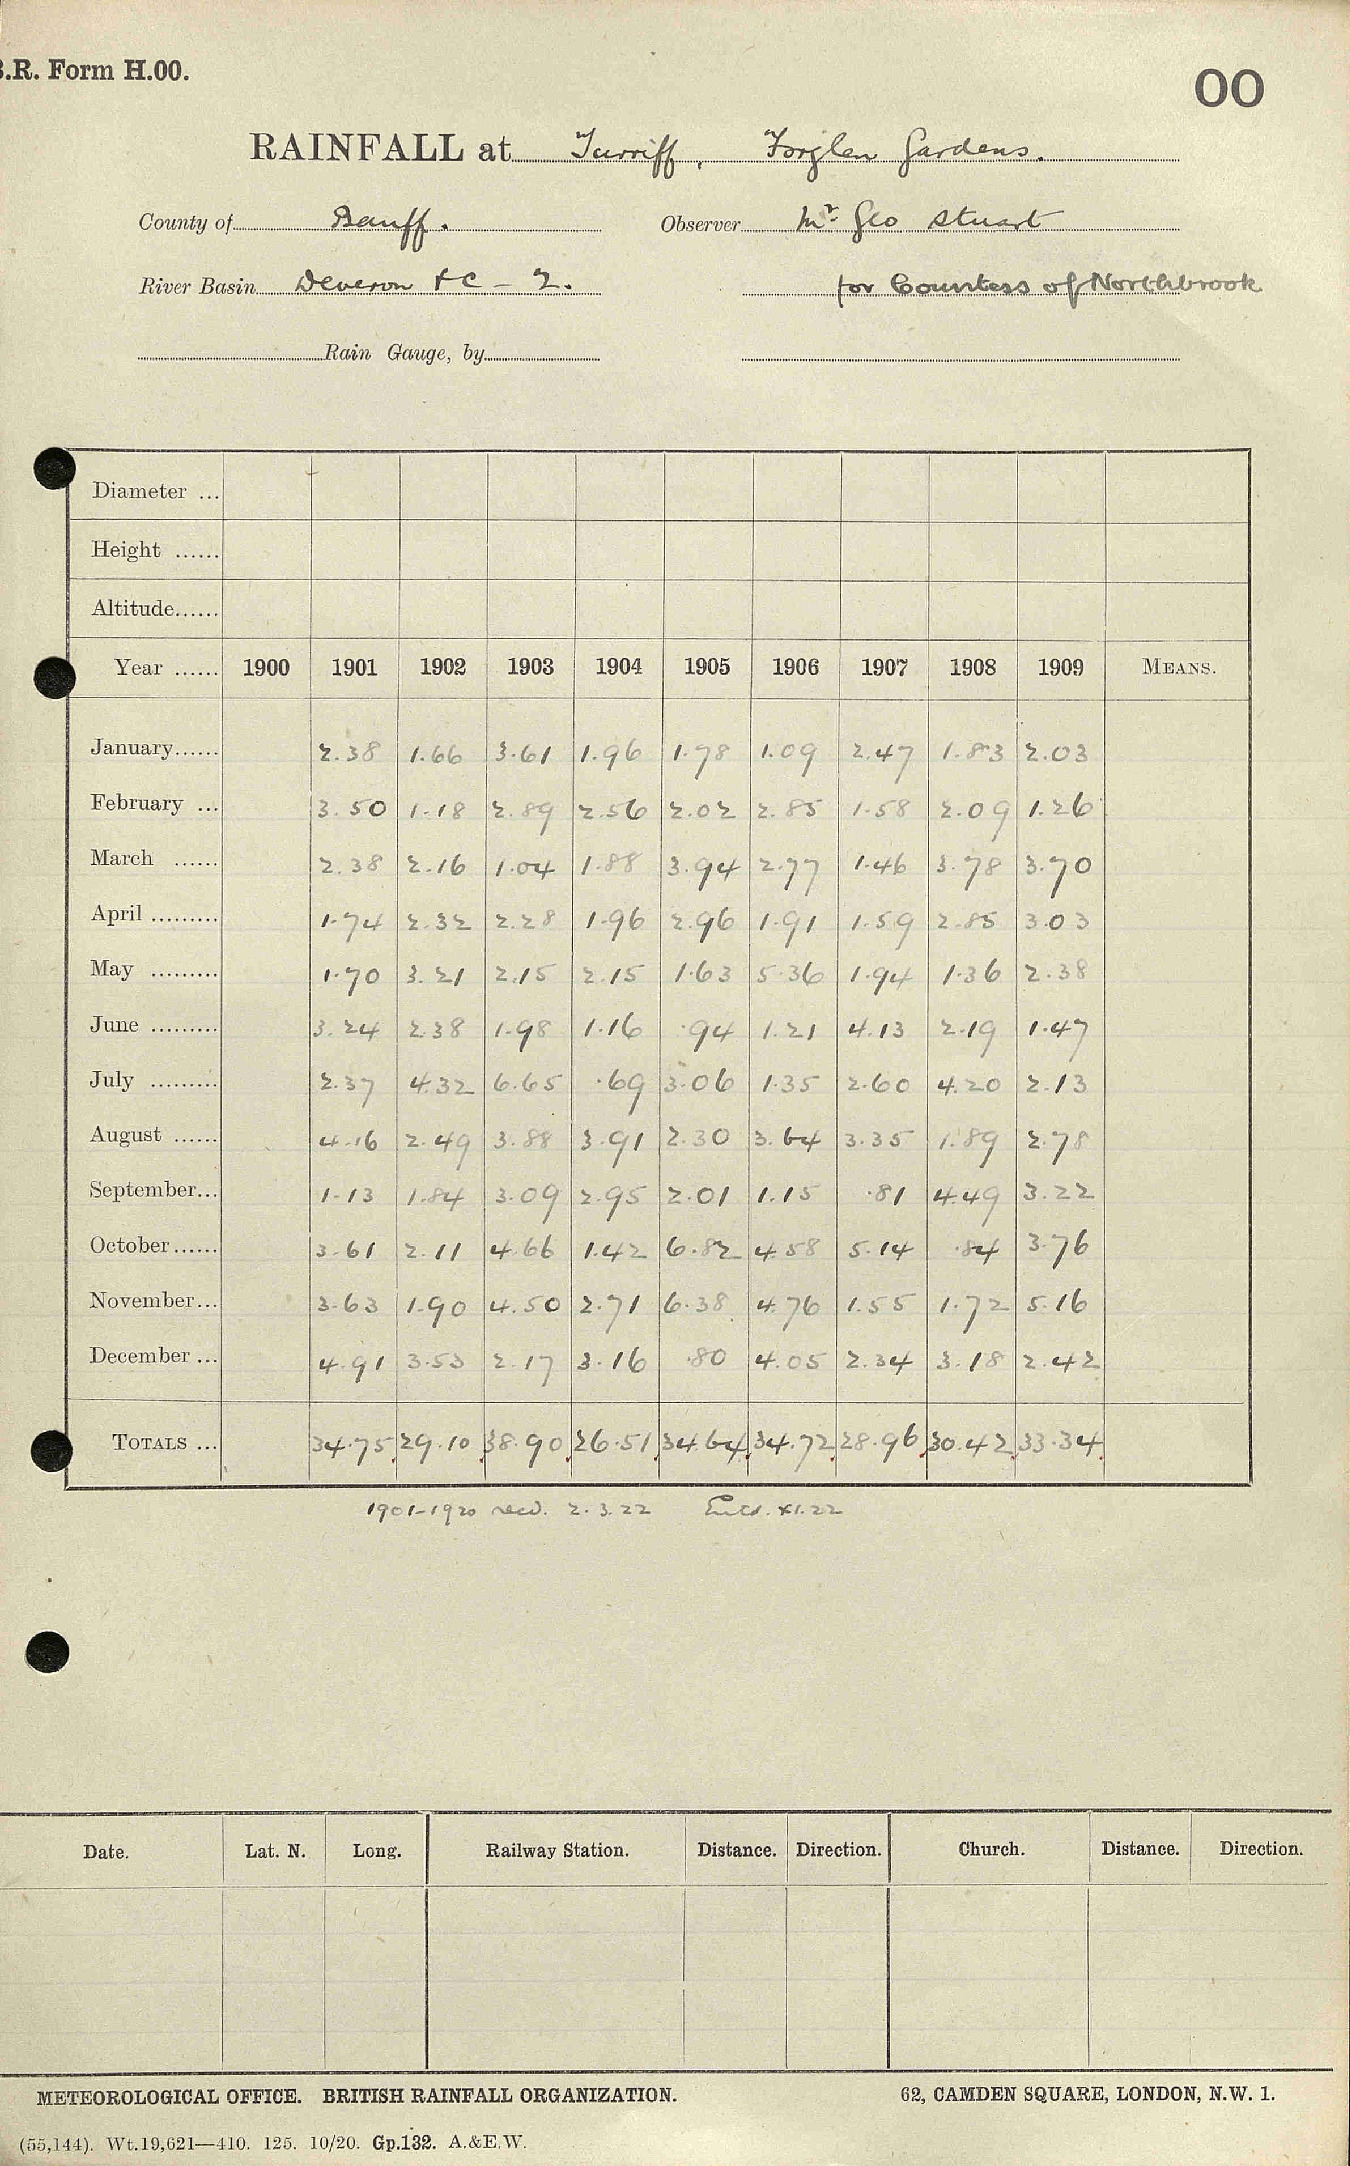 B.R. Form H.00.
00
RAINFALL at Turriff, Forglen Gardens.
County of Banff. Observer Mr. Geo Stuart
River Basin Deveron &c – 2. for Countess of Northbrook
Rain Gauge, by
Diameter ...
Height ......
Altitude......
Year ...... 1900 1901 1902 1903 1904 1905 1906 1907 1908 1909 MEANS.
January...... 2.38 1.66 3.61 1.96 1.78 1.09 2.47 1.83 2.03
February ... 3.50 1.18 2.89 2.56 2.02 2.85 1.58 2.09 1.26
March ...... 2.38 2.16 1.04 1.88 3.94 2.77 1.46 3.78 3.70
April ......... 1.74 2.32 2.28 1.96 2.96 1.91 1.59 2.85 3.03
May ......... 1.70 3.21 2.15 2.15 1.63 5.36 1.94 1.36 2.38
June ......... 3.24 2.38 1.98 1.16 .94 1.21 4.13 2.19 1.47
July ......... 2.37 4.32 6.65 .69 3.06 1.35 2.60 4.20 2.13
August ...... 4.16 2.49 3.88 3.91 2.30 3.64 3.35 1.89 2.78
September... 1.13 1.84 3.09 2.95 2.01 1.15 .81 4.49 3.22
October...... 3.61 2.11 4.66 1.42 6.82 4.58 5.14 .84 3.76
November... 3.63 1.90 4.50 2.71 6.38 4.76 1.55 1.72 5.16
December ... 4.91 3.53 2.17 3.16 .80 4.05 2.34 3.18 2.42
TOTALS ... 34.75 29.10 38.90 26.51 34.64 34.72 28.96 30.42 33.34
1901-1920 recd. 2.3.22 Entd. XI.22
Date. Lat. N. Long. Railway Station. Distance. Direction. Church. Distance. Direction.
METEOROLOGICAL OFFICE. BRITISH RAINFALL ORGANIZATION. 62, CAMDEN SQUARE, LONDON, N.W. 1.
(55,144). Wt.19,621—410. 125. 10/20. Gp.132. A.&E.W.